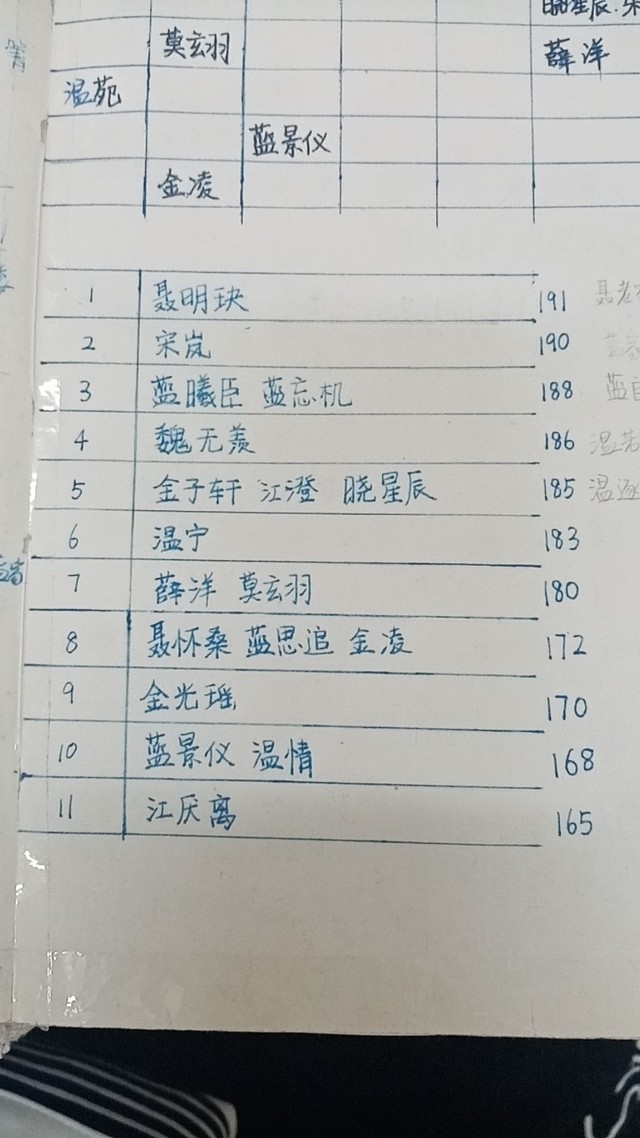 晓星辰.宋
莫玄羽 薛洋
温苑
蓝景仪
金凌
1 聂明玦 191
2 宋岚 190
3 蓝曦臣 蓝忘机 188
4 魏无羡 186
5 金子轩 江澄 晓星辰 185
6 温宁 183
7 薛洋 莫玄羽 180
8 聂怀桑 蓝思追 金凌 172
9 金光瑶 170
10 蓝景仪 温情 168
11 江厌离 165